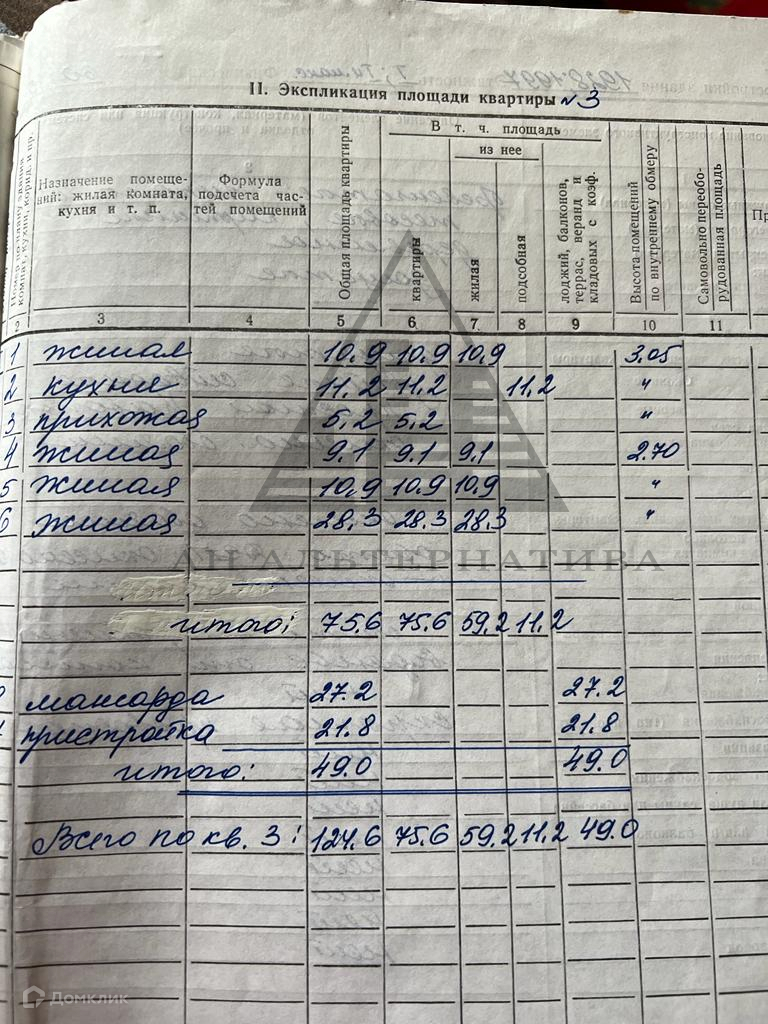 II. Экспликация площади квартиры №3
Номер по плану здания комнат, кухни, корид. и пр.
Назначение помеще-
ний: жилая комната,
кухня и т. п.
Формула
подсчета час-
тей помещений
Общая площадь квартиры
В т. ч. площадь
из нее
квартиры
жилая
подсобная
лоджий, балконов,
террас, веранд и
кладовых с коэф.
Высота помещений
по внутреннему обмеру
Самовольно переобо-
рудованная площадь
2 3 4 5 6 7 8 9 10 11
1 жилая 10.9 10.9 10.9 3.05
2 кухня 11.2 11.2 11.2 "
3 прихожая 5.2 5.2 "
4 жилая 9.1 9.1 9.1 2.70
5 жилая 10.9 10.9 10.9 "
6 жилая 28.3 28.3 28.3 "
АН АЛЬТЕРНАТИВА
итого: 75.6 75.6 59.2 11.2
мансарда 27.2 27.2
пристройка 21.8 21.8
итого: 49.0 49.0
Всего по кв. 3: 124.6 75.6 59.2 11.2 49.0
Домклик